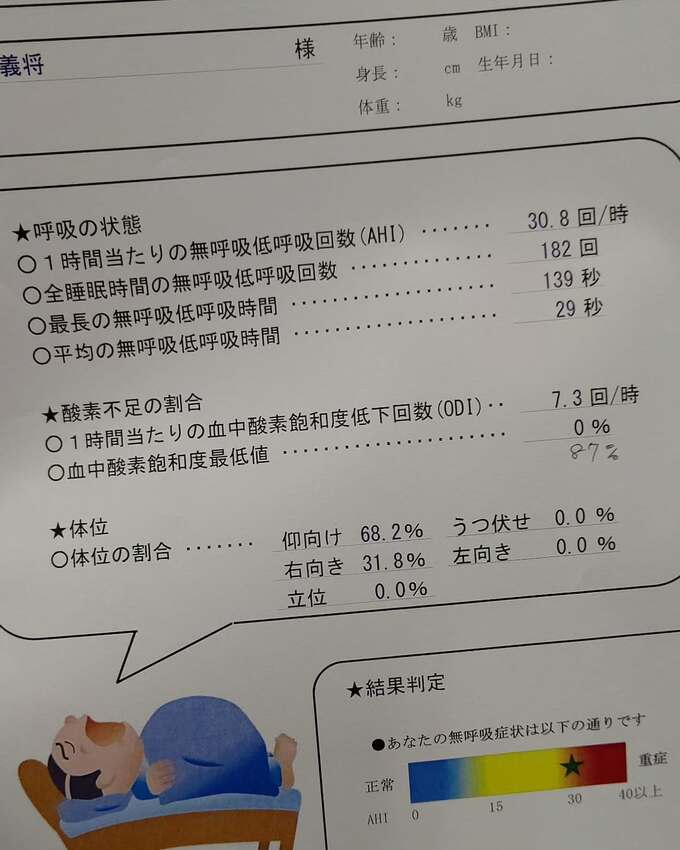 義将 様
年齢： 歳 BMI：
身長： cm 生年月日：
体重： kg
★呼吸の状態
○１時間当たりの無呼吸低呼吸回数(AHI) ······· 30.8 回/時
○全睡眠時間の無呼吸低呼吸回数 ·············· 182 回
○最長の無呼吸低呼吸時間 ···················· 139 秒
○平均の無呼吸低呼吸時間 ···················· 29 秒
★酸素不足の割合
○１時間当たりの血中酸素飽和度低下回数(ODI)·· 7.3 回/時
○血中酸素飽和度最低値 ······················ 0 %
87%
★体位
○体位の割合 ······· 仰向け 68.2% うつ伏せ 0.0 %
右向き 31.8% 左向き 0.0 %
立位 0.0%
★結果判定
●あなたの無呼吸症状は以下の通りです
正常 重症
AHI 0 15 30 40以上